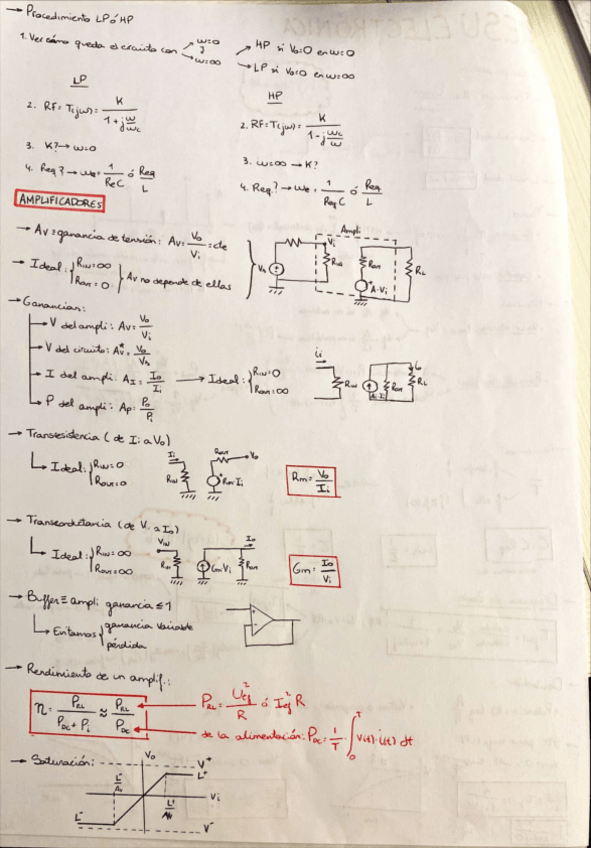 → Procedimiento LP ó HP
1. Ver cómo queda el circuito con ω=0 y ω=∞ → HP si Vo=0 en ω=0
→ LP si Vo=0 en ω=∞
LP
HP
2. RF=T(jω)= K / (1+j ω/ωc)
2. RF=T(jω)= K / (1-j ωc/ω)
3. K? → ω=0
3. ω=∞ → K?
4. Req? → ωc= 1/(ReC) ó Req/L
4. Req? → ωc= 1/(ReqC) ó Req/L
AMPLIFICADORES
→ Av=ganancia de tensión: Av= Vo/Vi =cte
→ Ideal: { RIN=∞ ROUT=0 } Av no depende de ellas
Ampli
Vs Vi RIN ROUT A·Vi RL
→ Ganancias:
→ V del ampli: Av= Vo/Vi
→ V del circuito: Av*= Vo/Vs
→ I del ampli: AI= Io/Ii → Ideal: { RIN=0 ROUT=∞
Ii RIN ROUT Io RL
→ P del ampli: Ap= Po/Pi
→ Transresistencia (de Ii a Vo)
Ideal: { RIN=0 ROUT=0
Ii RIN ROUT Vo Rm·Ii
Rm= Vo/Ii
→ Transconductancia (de Vi a Io)
Ideal: { RIN=∞ ROUT=∞
VIN RIN Gm·Vi ROUT Io
Gm= Io/Vi
→ Buffer ≡ ampli ganancia ≤ 1
Evitamos { ganancia variable pérdida
→ Rendimiento de un amplif.:
η= PRL/(PDC+Pi) ≈ PRL/PDC
PRL= Uef²/R ó Ief² R
de la alimentación: PDC= 1/T · ∫₀ᵀ v(t)·i(t) dt
→ Saturación:
Vo V⁺ L⁺ L⁻/Av Vi L⁺/Av L⁻ V⁻